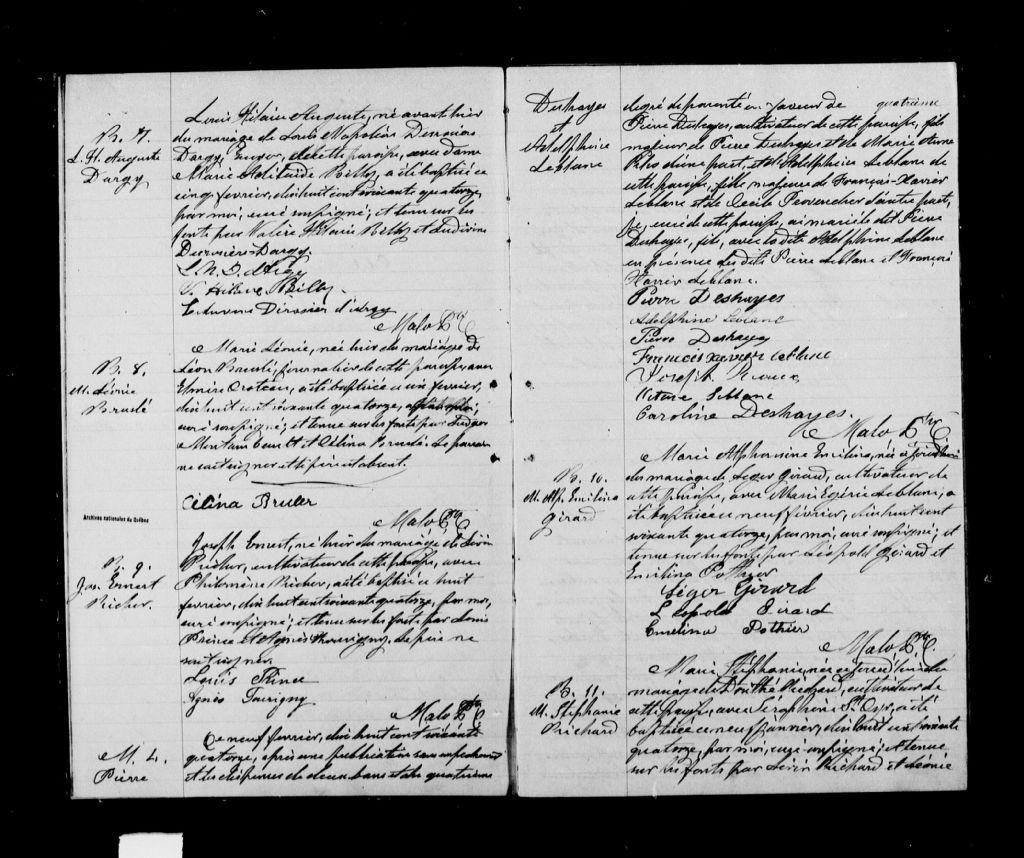 B. 7.
L. H. Auguste
Dargy
Louis Hilaire Auguste, né avant hier
du mariage de Louis Napoléon Derosiers
Dargy, Ecuyer, de cette paroisse, avec dame
Marie Adélaïde Billy, a été baptisé ce
cinq février, dix huit cent soixante quatorze,
par moi, curé soussigné; et tenu sur les
fonts par Valère Hilaire Billy et Ludivine
Durosiers-Dargy.
L. N. D. d'Argy
V. Hilaire Billy
Malo Ptr C
B. 8.
M. Léonie
Brulé
Marie Léonie, née hier du mariage de
Léon Brulé, journalier de cette paroisse, avec
Elmire Croteau, a été baptisée ce six février,
dix huit cent soixante quatorze,
curé soussigné; et tenue sur les fonts par
et Célina Brulé. Le parrain
ne sait signer et le père est absent.
Célina Bruler
Malo Ptr C
Archives nationales du Québec
B. 9.
Jos. Ernest
Richer.
Joseph Ernest, né hier du mariage de
Richer, cultivateur de cette paroisse, avec
Philomène Richer, a été baptisé ce huit
février, dix huit cent soixante quatorze, par moi,
curé soussigné; et tenu sur les fonts par Louis
Prince et Agnès Tourigny. Le père ne
sait signer.
Louis Prince
Agnès Tourigny
Malo Ptr C
M. 4.
Pierre
Ce neuf février, dix huit cent soixante
quatorze, après une publication sans empêchement
et les dispenses de deux bans et du quatrième
Deshayes
et
Adelphine
Leblanc
degré de parenté en faveur de quatrième
Pierre Deshayes, cultivateur de cette paroisse, fils
majeur de Pierre Deshayes et de Marie Anne
d'une part, et d'Adelphine Leblanc de
cette paroisse, fille majeure de François-Xavier
Leblanc et de Cécile Provencher d'autre part,
je, curé de cette paroisse, ai marié le dit Pierre
Deshayes, fils, avec la dite Adelphine Leblanc
en présence des dits Pierre Leblanc et François
Xavier Leblanc.
Pierre Deshayes
Adelphine Leblanc
Pierre Deshayes
Francois xavier leblanc
Joseph
Leblanc
Caroline Deshayes.
Malo Ptr C
B. 10.
M. Alp. Emilina
Girard
Marie Alphonsine Emilina, née
du mariage de Léger Girard, cultivateur de
cette paroisse, avec Marie Egérie Leblanc, a
été baptisée ce neuf février, dix huit cent
soixante quatorze, par moi, curé soussigné; et
tenue sur les fonts par Léopold Girard et
Emilina Pothier
Léger Girard
Léopold Girard
Emelina Pothier
Malo Ptr C.
B. 11.
M. Stéphanie
Richard
Marie Stéphanie, née
mariage de Richard, cultivateur de
cette paroisse, avec Séraphine St. Cyr, a été
baptisée ce neuf janvier, dix huit cent soixante
quatorze, par moi, curé soussigné; et tenue
sur les fonts par Richard et Léonie